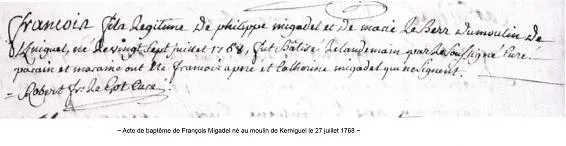 françois fils legitime de philippe migadel et de marie le Berr dumoulin de
K/niguel, né le vingt sept juillet 1768, fut Batisé le landemain par le soussigné Curé.
parain et maraine ont été françois aperé et Catherine migadel qui ne signent.
Robert fr. le Got Curé.
~ Acte de baptême de François Migadel né au moulin de Kerniguel le 27 juillet 1768 ~